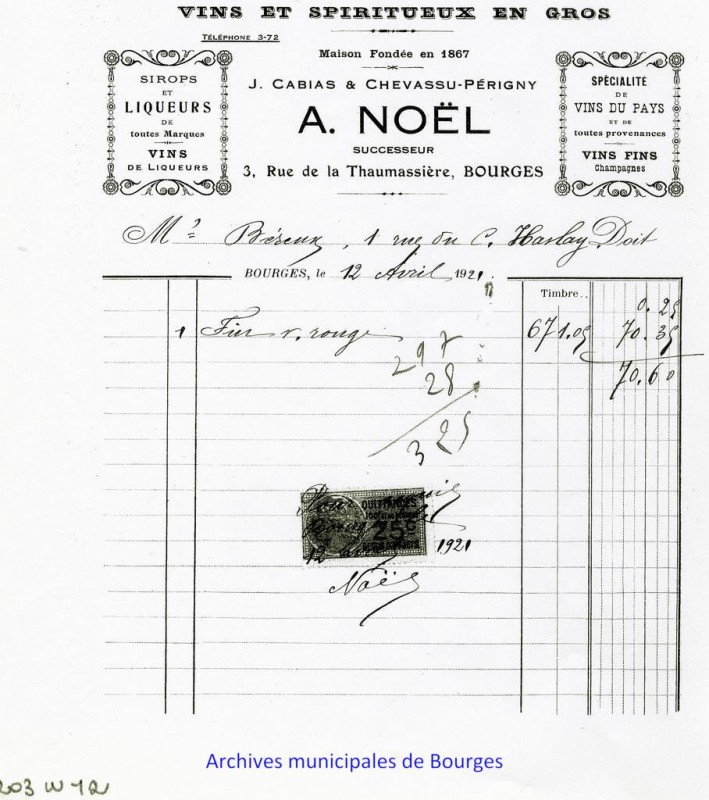 VINS ET SPIRITUEUX EN GROS
TÉLÉPHONE 3-72
Maison Fondée en 1867
SIROPS
ET
LIQUEURS
DE
toutes Marques
VINS
DE LIQUEURS
J. CABIAS & CHEVASSU-PÉRIGNY
A. NOËL
SUCCESSEUR
3, Rue de la Thaumassière, BOURGES
SPÉCIALITÉ
DE
VINS DU PAYS
ET DE
toutes provenances
VINS FINS
Champagnes
Mr Bézeux, 1 rue du C. Harlay Doit
BOURGES, le 12 Avril 1921
Timbre.. 0.25
1 Fût v. rouge 671.05 70.35
70.60
297
28
325
QUITTANCES
25c
12 1921
Noël
Archives municipales de Bourges
203 W 12